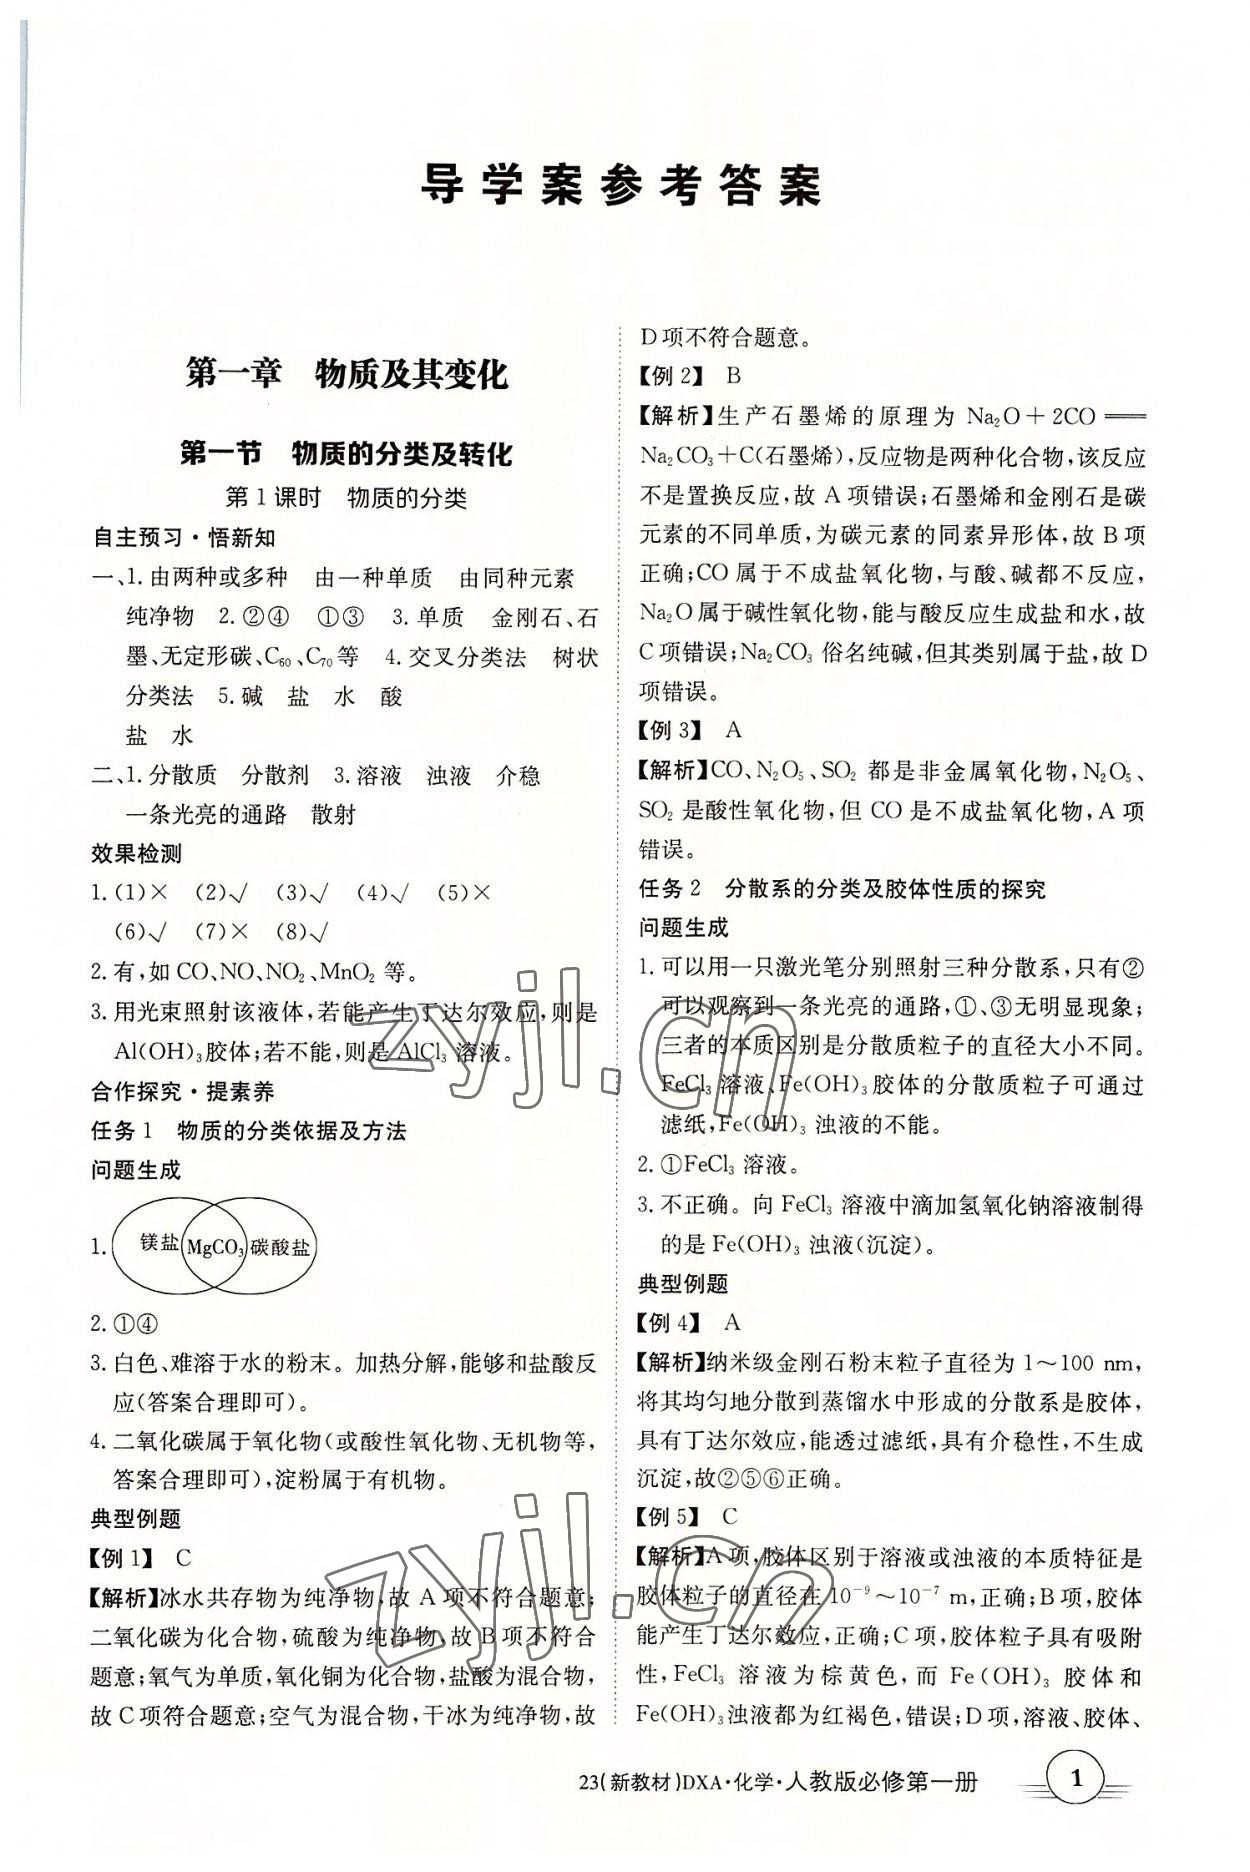 导学案参考答案
第一章　物质及其变化
第一节　物质的分类及转化
第1课时　物质的分类
自主预习·悟新知
一、1.由两种或多种　由一种单质　由同种元素
纯净物　2.②④　①③　3.单质　金刚石、石
墨、无定形碳、C₆₀、C₇₀等　4.交叉分类法　树状
分类法　5.碱　盐　水　酸
盐　水
二、1.分散质　分散剂　3.溶液　浊液　介稳
一条光亮的通路　散射
效果检测
1.(1)×　(2)√　(3)√　(4)√　(5)×
(6)√　(7)×　(8)√
2.有,如CO、NO、NO₂、MnO₂等。
3.用光束照射该液体,若能产生丁达尔效应,则是
Al(OH)₃胶体;若不能,则是AlCl₃溶液。
合作探究·提素养
任务1　物质的分类依据及方法
问题生成
1. 镁盐 MgCO₃ 碳酸盐
2.①④
3.白色、难溶于水的粉末。加热分解,能够和盐酸反
应(答案合理即可)。
4.二氧化碳属于氧化物(或酸性氧化物、无机物等,
答案合理即可),淀粉属于有机物。
典型例题
【例1】　C
【解析】冰水共存物为纯净物,故A项不符合题意;
二氧化碳为化合物,硫酸为纯净物,故B项不符合
题意;氧气为单质,氧化铜为化合物,盐酸为混合物,
故C项符合题意;空气为混合物,干冰为纯净物,故
D项不符合题意。
【例2】　B
【解析】生产石墨烯的原理为Na₂O+2CO══
Na₂CO₃+C(石墨烯),反应物是两种化合物,该反应
不是置换反应,故A项错误;石墨烯和金刚石是碳
元素的不同单质,为碳元素的同素异形体,故B项
正确;CO属于不成盐氧化物,与酸、碱都不反应,
Na₂O属于碱性氧化物,能与酸反应生成盐和水,故
C项错误;Na₂CO₃俗名纯碱,但其类别属于盐,故D
项错误。
【例3】　A
【解析】CO、N₂O₅、SO₂都是非金属氧化物,N₂O₅、
SO₂是酸性氧化物,但CO是不成盐氧化物,A项
错误。
任务2　分散系的分类及胶体性质的探究
问题生成
1.可以用一只激光笔分别照射三种分散系,只有②
可以观察到一条光亮的通路,①、③无明显现象;
三者的本质区别是分散质粒子的直径大小不同。
FeCl₃溶液、Fe(OH)₃胶体的分散质粒子可通过
滤纸,Fe(OH)₃浊液的不能。
2.①FeCl₃溶液。
3.不正确。向FeCl₃溶液中滴加氢氧化钠溶液制得
的是Fe(OH)₃浊液(沉淀)。
典型例题
【例4】　A
【解析】纳米级金刚石粉末粒子直径为1～100 nm,
将其均匀地分散到蒸馏水中形成的分散系是胶体,
具有丁达尔效应,能透过滤纸,具有介稳性,不生成
沉淀,故②⑤⑥正确。
【例5】　C
【解析】A项,胶体区别于溶液或浊液的本质特征是
胶体粒子的直径在10⁻⁹～10⁻⁷ m,正确;B项,胶体
能产生丁达尔效应,正确;C项,胶体粒子具有吸附
性,FeCl₃溶液为棕黄色,而Fe(OH)₃胶体和
Fe(OH)₃浊液都为红褐色,错误;D项,溶液、胶体、
zyjl.cn
zyjl.cn
23(新教材)DXA·化学·人教版必修第一册
1